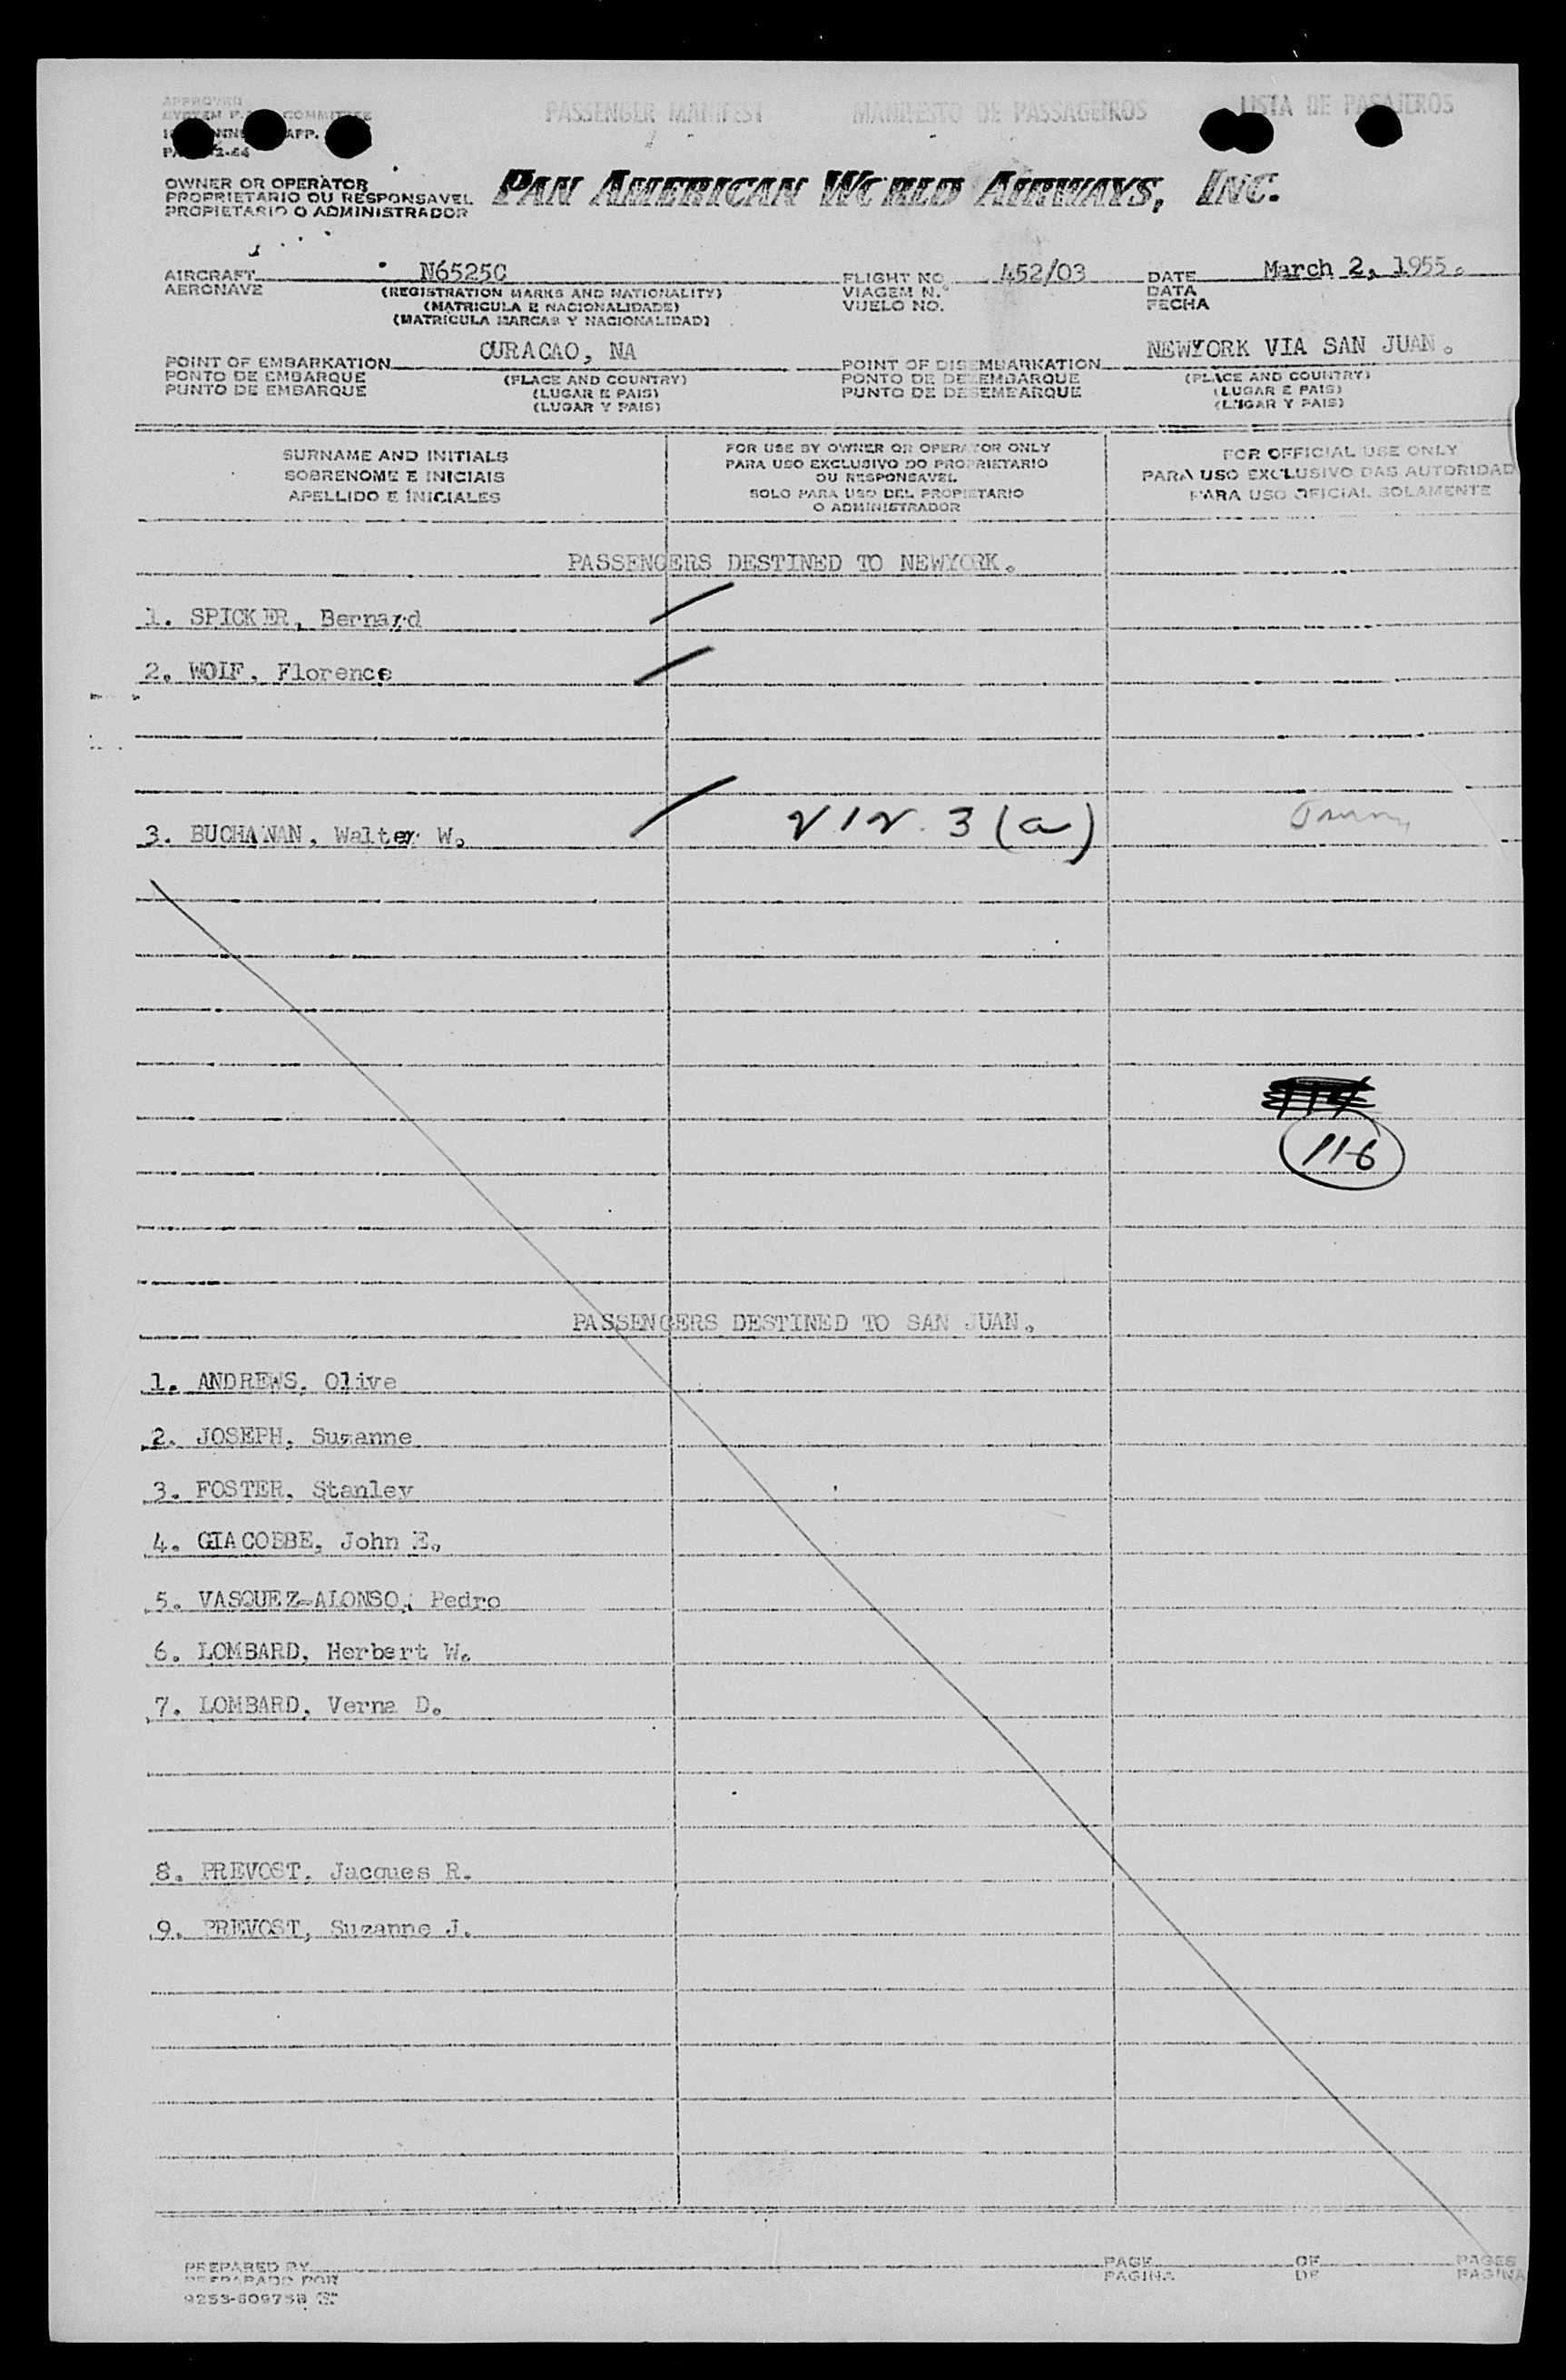 APPROVED
SYSTEM COMMITTEE
APP.
PASSENGER MANIFEST MANIFESTO DE PASSAGEIROS LISTA DE PASAJEROS
OWNER OR OPERATOR
PROPRIETARIO OU RESPONSAVEL
PROPIETARIO O ADMINISTRADOR
PAN AMERICAN WORLD AIRWAYS, INC.
AIRCRAFT N6525C FLIGHT NO. 452/03 DATE March 2, 1955.
AERONAVE (REGISTRATION MARKS AND NATIONALITY) VIAGEM N.° DATA
(MATRICULA E NACIONALIDADE) VUELO NO. FECHA
(MATRICULA MARCAS Y NACIONALIDAD)
POINT OF EMBARKATION CURACAO, NA POINT OF DISEMBARKATION NEWYORK VIA SAN JUAN.
PONTO DE EMBARQUE (PLACE AND COUNTRY) PONTO DE DEZEMBARQUE (PLACE AND COUNTRY)
PUNTO DE EMBARQUE (LUGAR E PAIS) PUNTO DE DESEMBARQUE (LUGAR E PAIS)
(LUGAR Y PAIS) (LUGAR Y PAIS)
SURNAME AND INITIALS
SOBRENOME E INICIAIS
APELLIDO E INICIALES
FOR USE BY OWNER OR OPERATOR ONLY
PARA USO EXCLUSIVO DO PROPRIETARIO
OU RESPONSAVEL
SOLO PARA USO DEL PROPIETARIO
O ADMINISTRADOR
FOR OFFICIAL USE ONLY
PARA USO EXCLUSIVO DAS AUTORIDAD
PARA USO OFICIAL SOLAMENTE
PASSENGERS DESTINED TO NEWYORK.
1. SPICKER, Bernard
2. WOLF, Florence
3. BUCHANAN, Walter W. 3 (a)
116
PASSENGERS DESTINED TO SAN JUAN.
1. ANDREWS, Olive
2. JOSEPH, Suzanne
3. FOSTER, Stanley
4. GIACOBBE, John E.
5. VASQUEZ-ALONSO, Pedro
6. LOMBARD, Herbert W.
7. LOMBARD, Verna D.
8. PREVOST, Jacques R.
9. PREVOST, Suzanne J.
PREPARED BY PAGE OF PAGES
PREPARADO POR PAGINA DE PAGINA